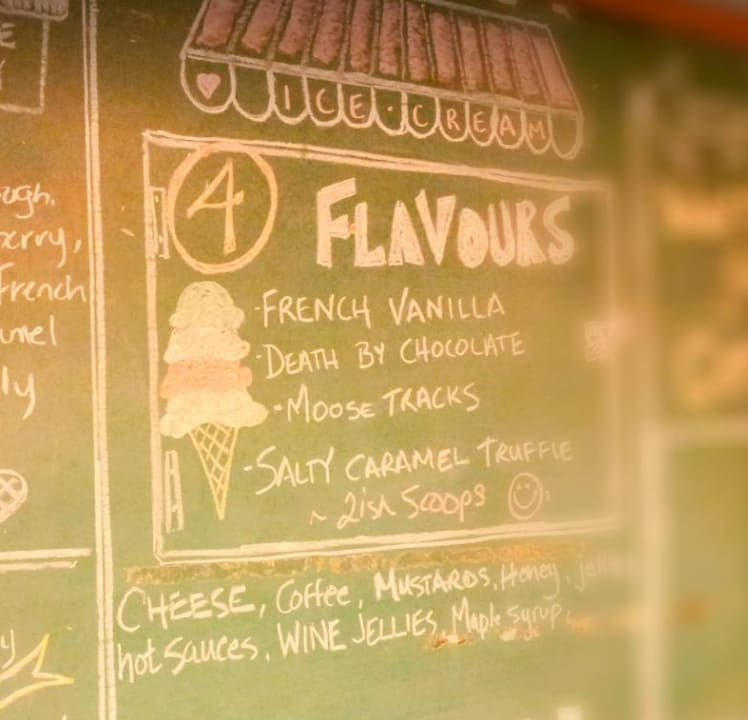 ICE·CREAM
4
FLAVOURS
-FRENCH VANILLA
-DEATH BY CHOCOLATE
-MOOSE TRACKS
-SALTY CARAMEL TRUFFLE
~ 2ish Scoops
CHEESE, Coffee, MUSTARDS, Honey,
hot sauces, WINE JELLIES, Maple syrup
French